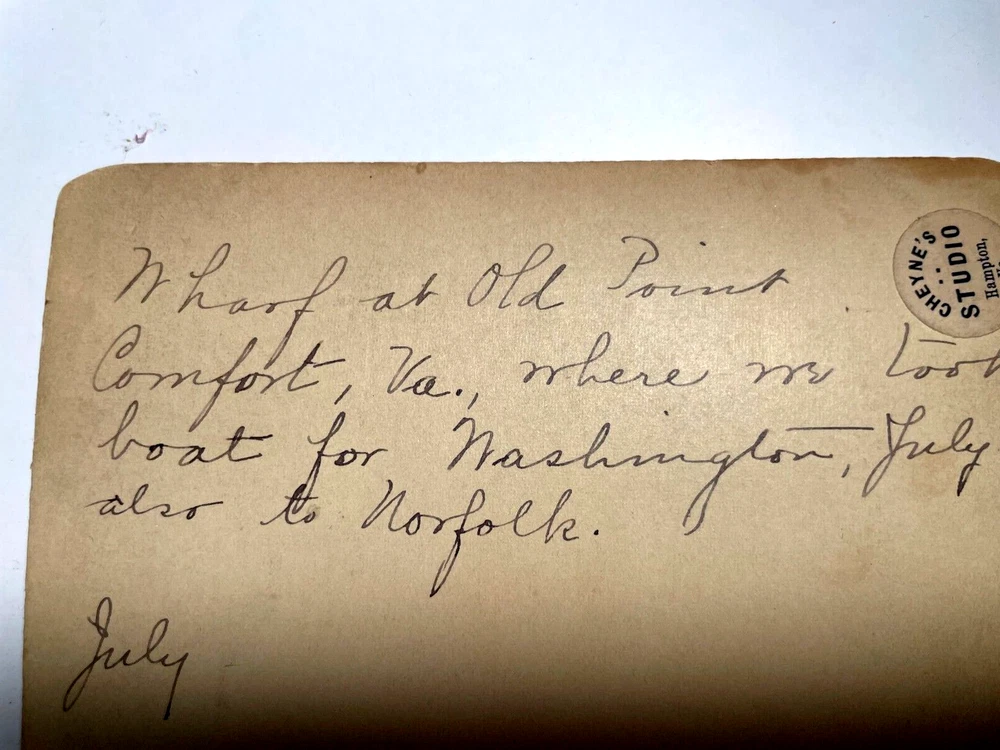 Wharf at Old Point
Comfort, Va., where we took
boat for Washington, July
also to Norfolk.
July
CHEYNE'S
STUDIO
Hampton,